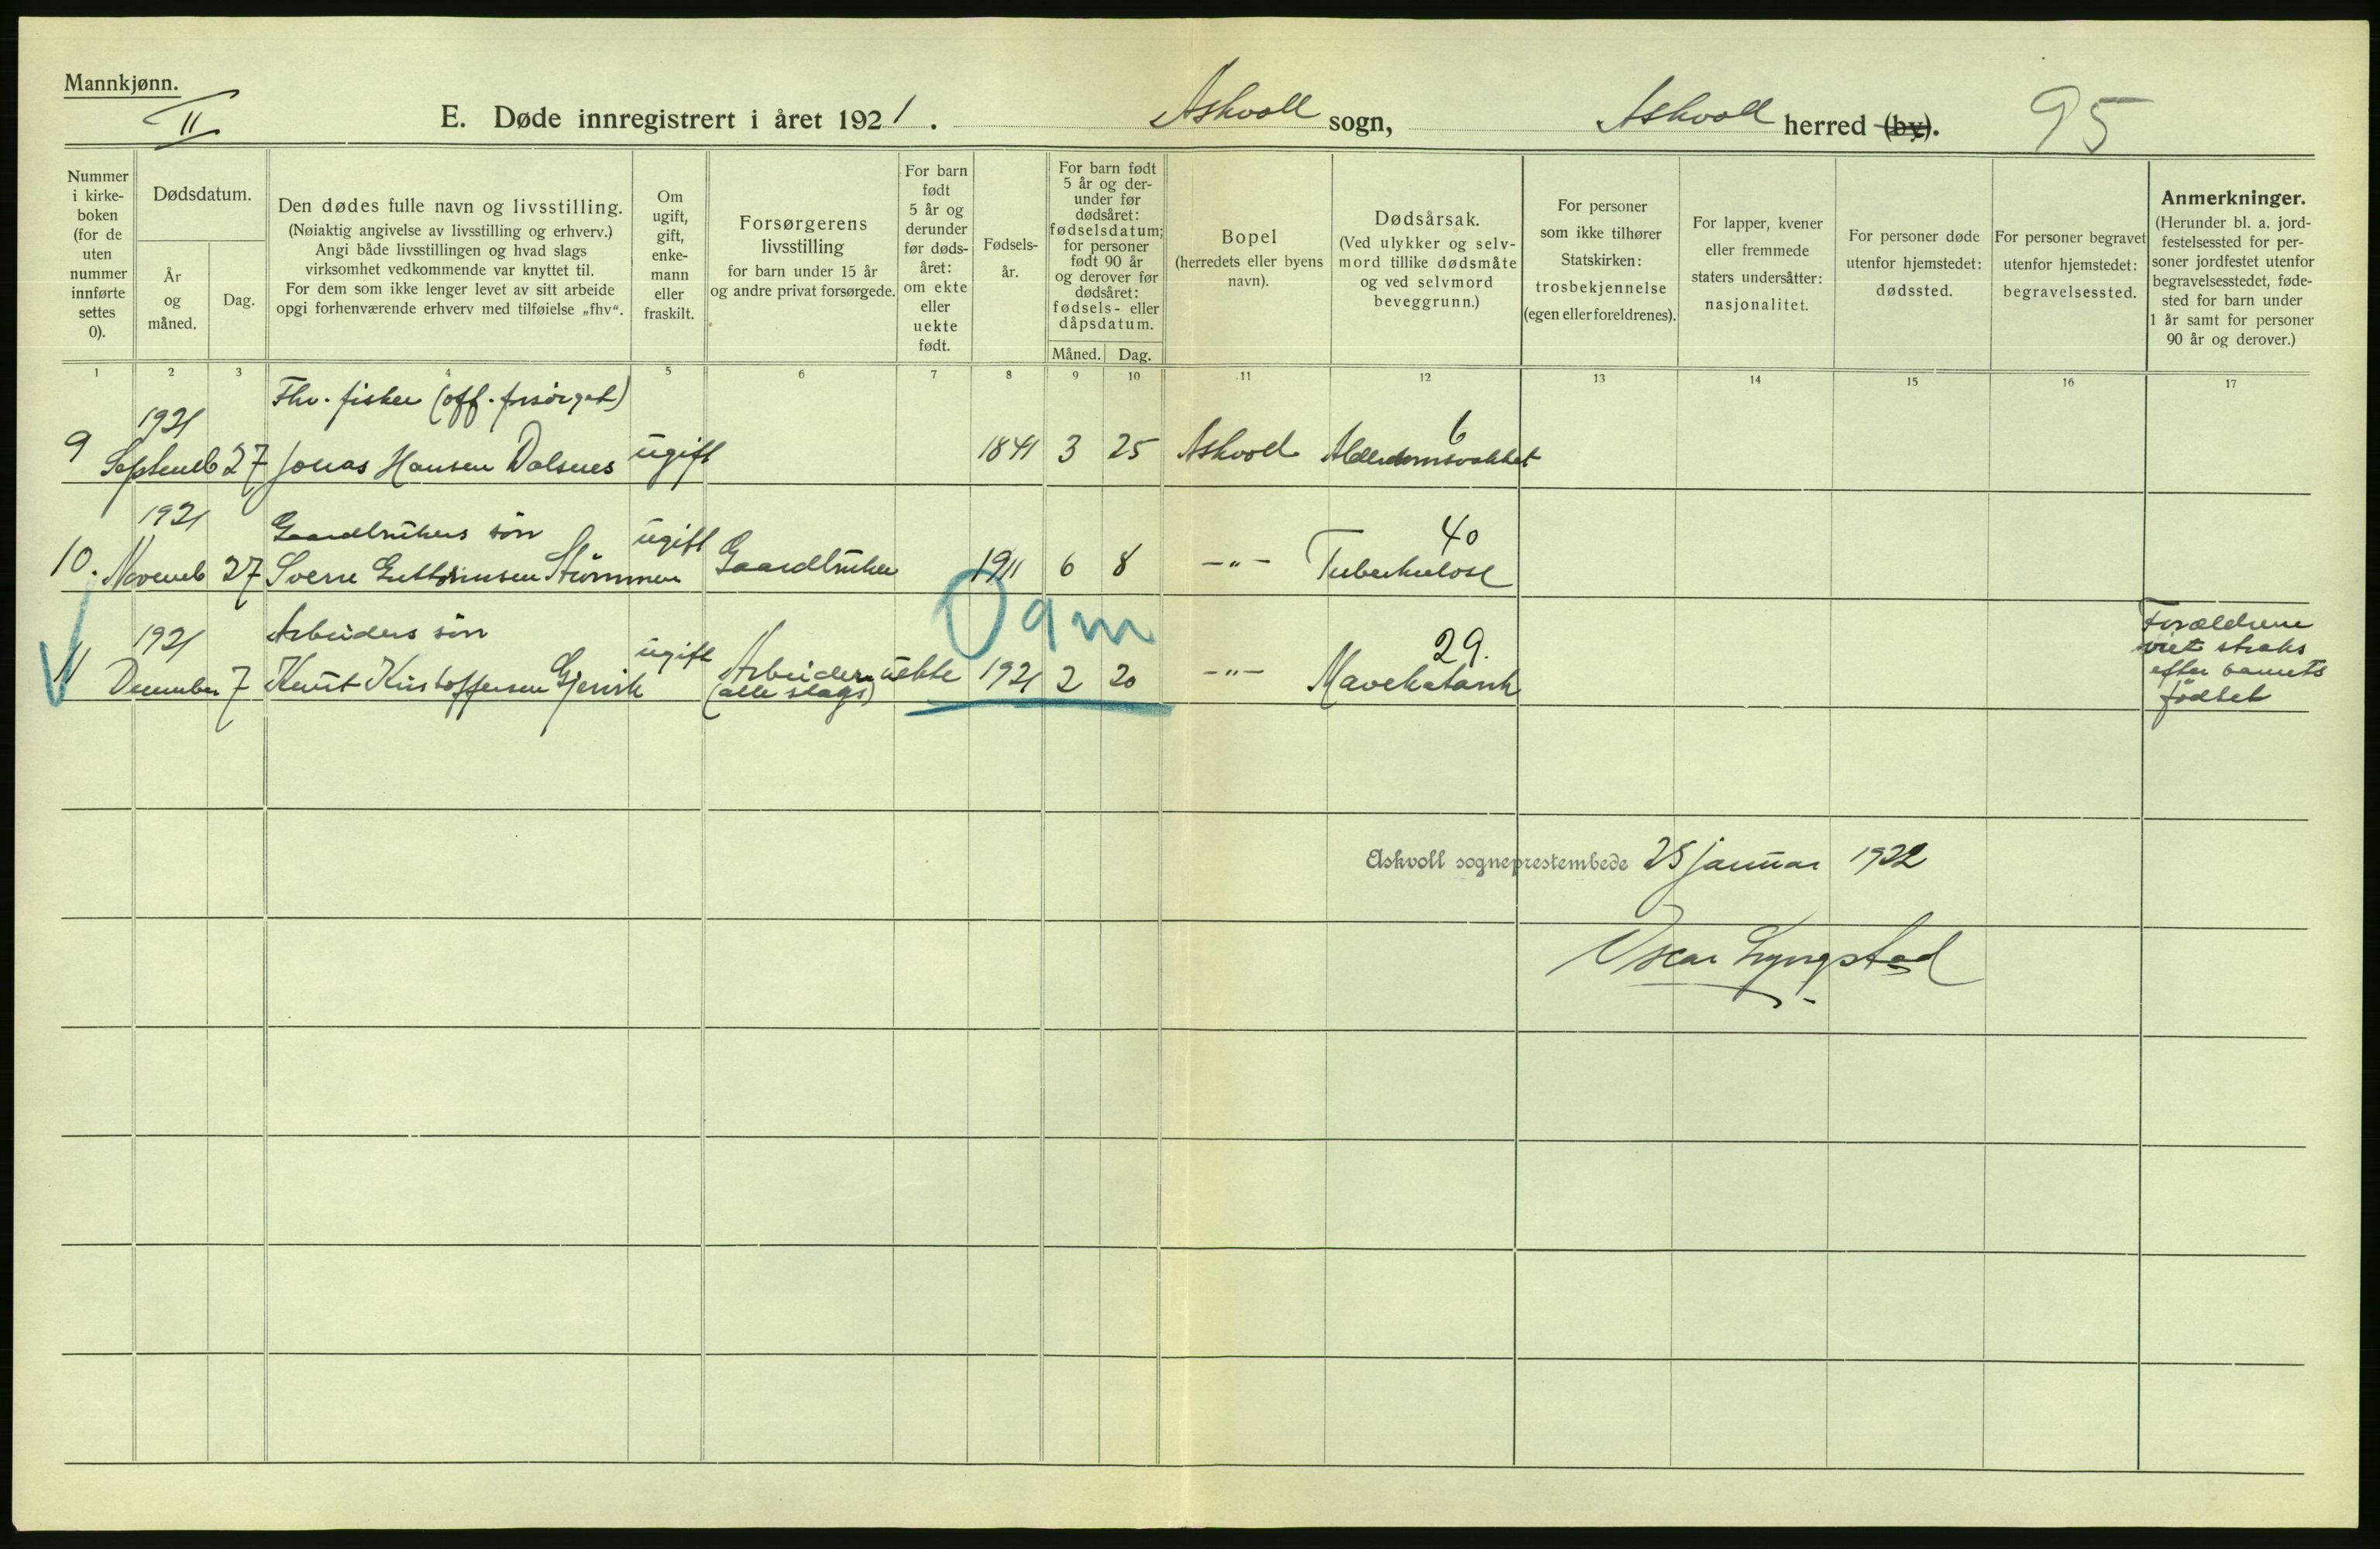 Mannkjønn.
II
E. Døde innregistrert i året 1921. Askvoll sogn, Askvoll herred (by).
95
Nummer i kirke- boken (for de uten nummer innførte settes 0).
Dødsdatum.
År og måned.
Dag.
Den dødes fulle navn og livsstilling.
(Nøiaktig angivelse av livsstilling og erhverv.)
Angi både livsstillingen og hvad slags
virksomhet vedkommende var knyttet til.
For dem som ikke lenger levet av sitt arbeide
opgi forhenværende erhverv med tilføielse „fhv“.
Om ugift, gift, enke- mann eller fraskilt.
Forsørgerens
livsstilling
for barn under 15 år
og andre privat forsørgede.
For barn født 5 år og derunder før døds- året: om ekte eller uekte født.
Fødsels- år.
For barn født 5 år og der- under før dødsåret: fødselsdatum; for personer født 90 år og derover før dødsåret: fødsels- eller dåpsdatum.
Måned. Dag.
Bopel
(herredets eller byens
navn).
Dødsårsak.
(Ved ulykker og selv-
mord tillike dødsmåte
og ved selvmord
beveggrunn.)
For personer
som ikke tilhører
Statskirken:
trosbekjennelse
(egen eller foreldrenes).
For lapper, kvener
eller fremmede
staters undersåtter:
nasjonalitet.
For personer døde
utenfor hjemstedet:
dødssted.
For personer begravet
utenfor hjemstedet:
begravelsessted.
Anmerkninger.
(Herunder bl. a. jord-
festelsessted for per-
soner jordfestet utenfor
begravelsesstedet, føde-
sted for barn under
1 år samt for personer
90 år og derover.)
1 2 3 4 5 6 7 8 9 10 11 12 13 14 15 16 17
1921 Fhv. fisker (off. forsørget) 6
9 Septemb 27 Jonas Hansen Dalsnes ugift 1841 3 25 Askvoll Alderdomsvakhet
1921 Gaardbrukers søn ugift 40
10. Novemb 27 Sverre Guttormsen Strømmen Gaardbruker 1911 6 8 -"- Tuberkulose
0 9 m
1921 Arbeiders søn ugift 29.
11 December 7 Knut Kristoffersen Gjervik Arbeider uekte 1921 2 20 -"- Mavekatarrh
(alle slags)
Forældrene
viet straks
efter barnets
fødsel
Askvoll sogneprestembede 25 januar 1922
Oscar Lyngstad